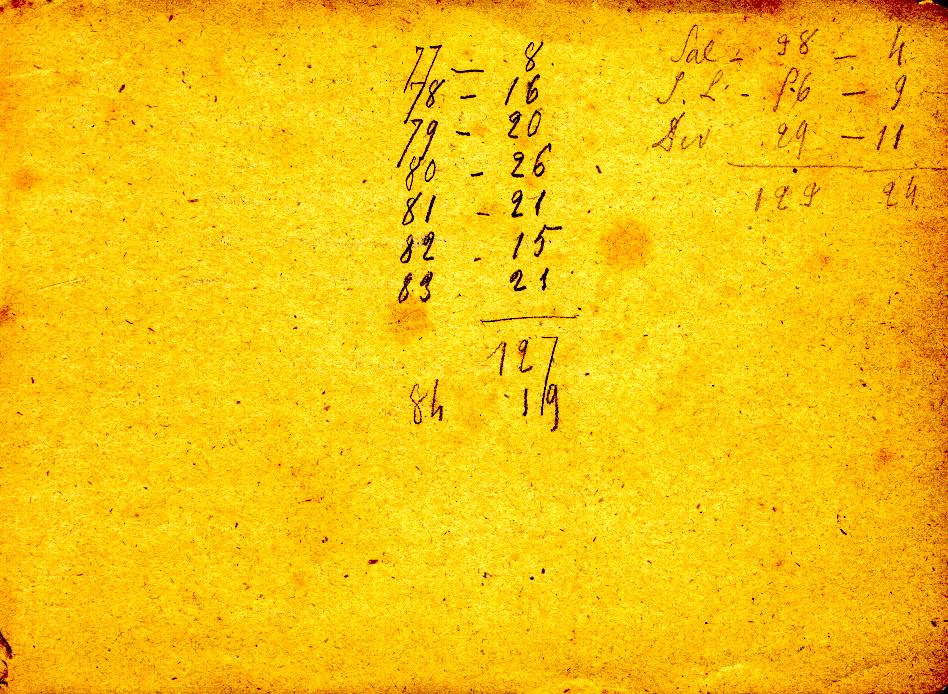 77 — 8
78 - 16
79 - 20
80 - 26
81 - 21
82 - 15
83 21
127
84 19
Sal - 38 - 4
S. L. - 56 - 9
Div 29 - 11
123 24